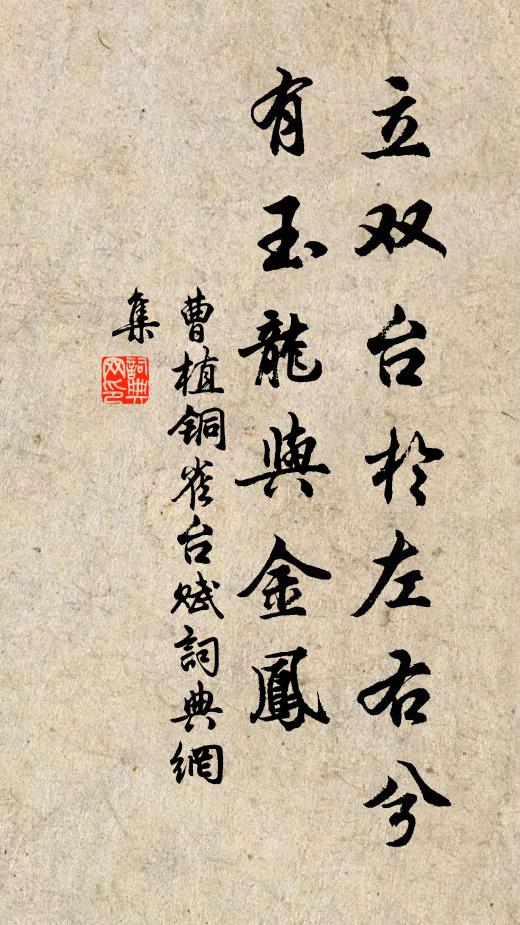 立双台於左右兮
有玉龍與金鳳
曹植铜雀台赋詞典網
集
詞典
网印